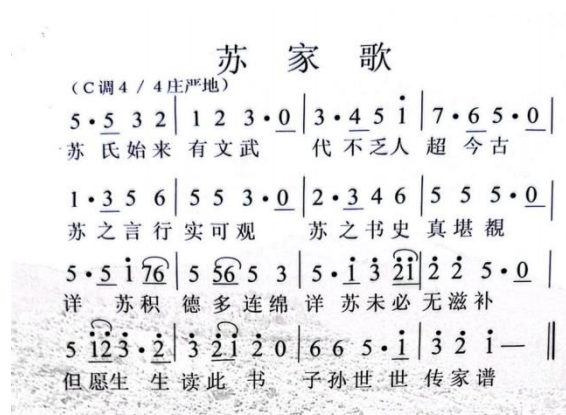 苏 家 歌
(C调4/4庄严地)
5·5 3 2 | 1 2 3·0 | 3·4 5 i | 7·6 5·0 |
苏 氏始来 有文武 代 不乏人 超 今古
1·3 5 6 | 5 5 3·0 | 2·3 4 6 | 5 5 5·0 |
苏 之言行 实可观 苏 之书史 真堪覩
5·5 i 76 | 5 56 5 3 | 5·i 3 2i | 2 2 5·0 |
详 苏积 德多连绵 详 苏未必 无滋补
5 12 3·2 | 3 2i 2 0 | 6 6 5·i | 3 2 i — ‖
但愿生 生读此 书 子孙世 世 传家谱